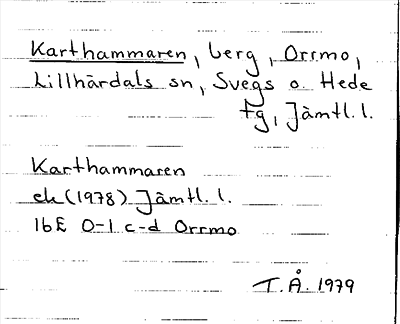 Karthammaren, berg, Orrmo,
Lillhärdals sn, Svegs o. Hede
tg, Jämtl. l.
Karthammaren
ek (1978) Jämtl. l.
16E 0-1 c-d Orrmo
T.Å. 1979